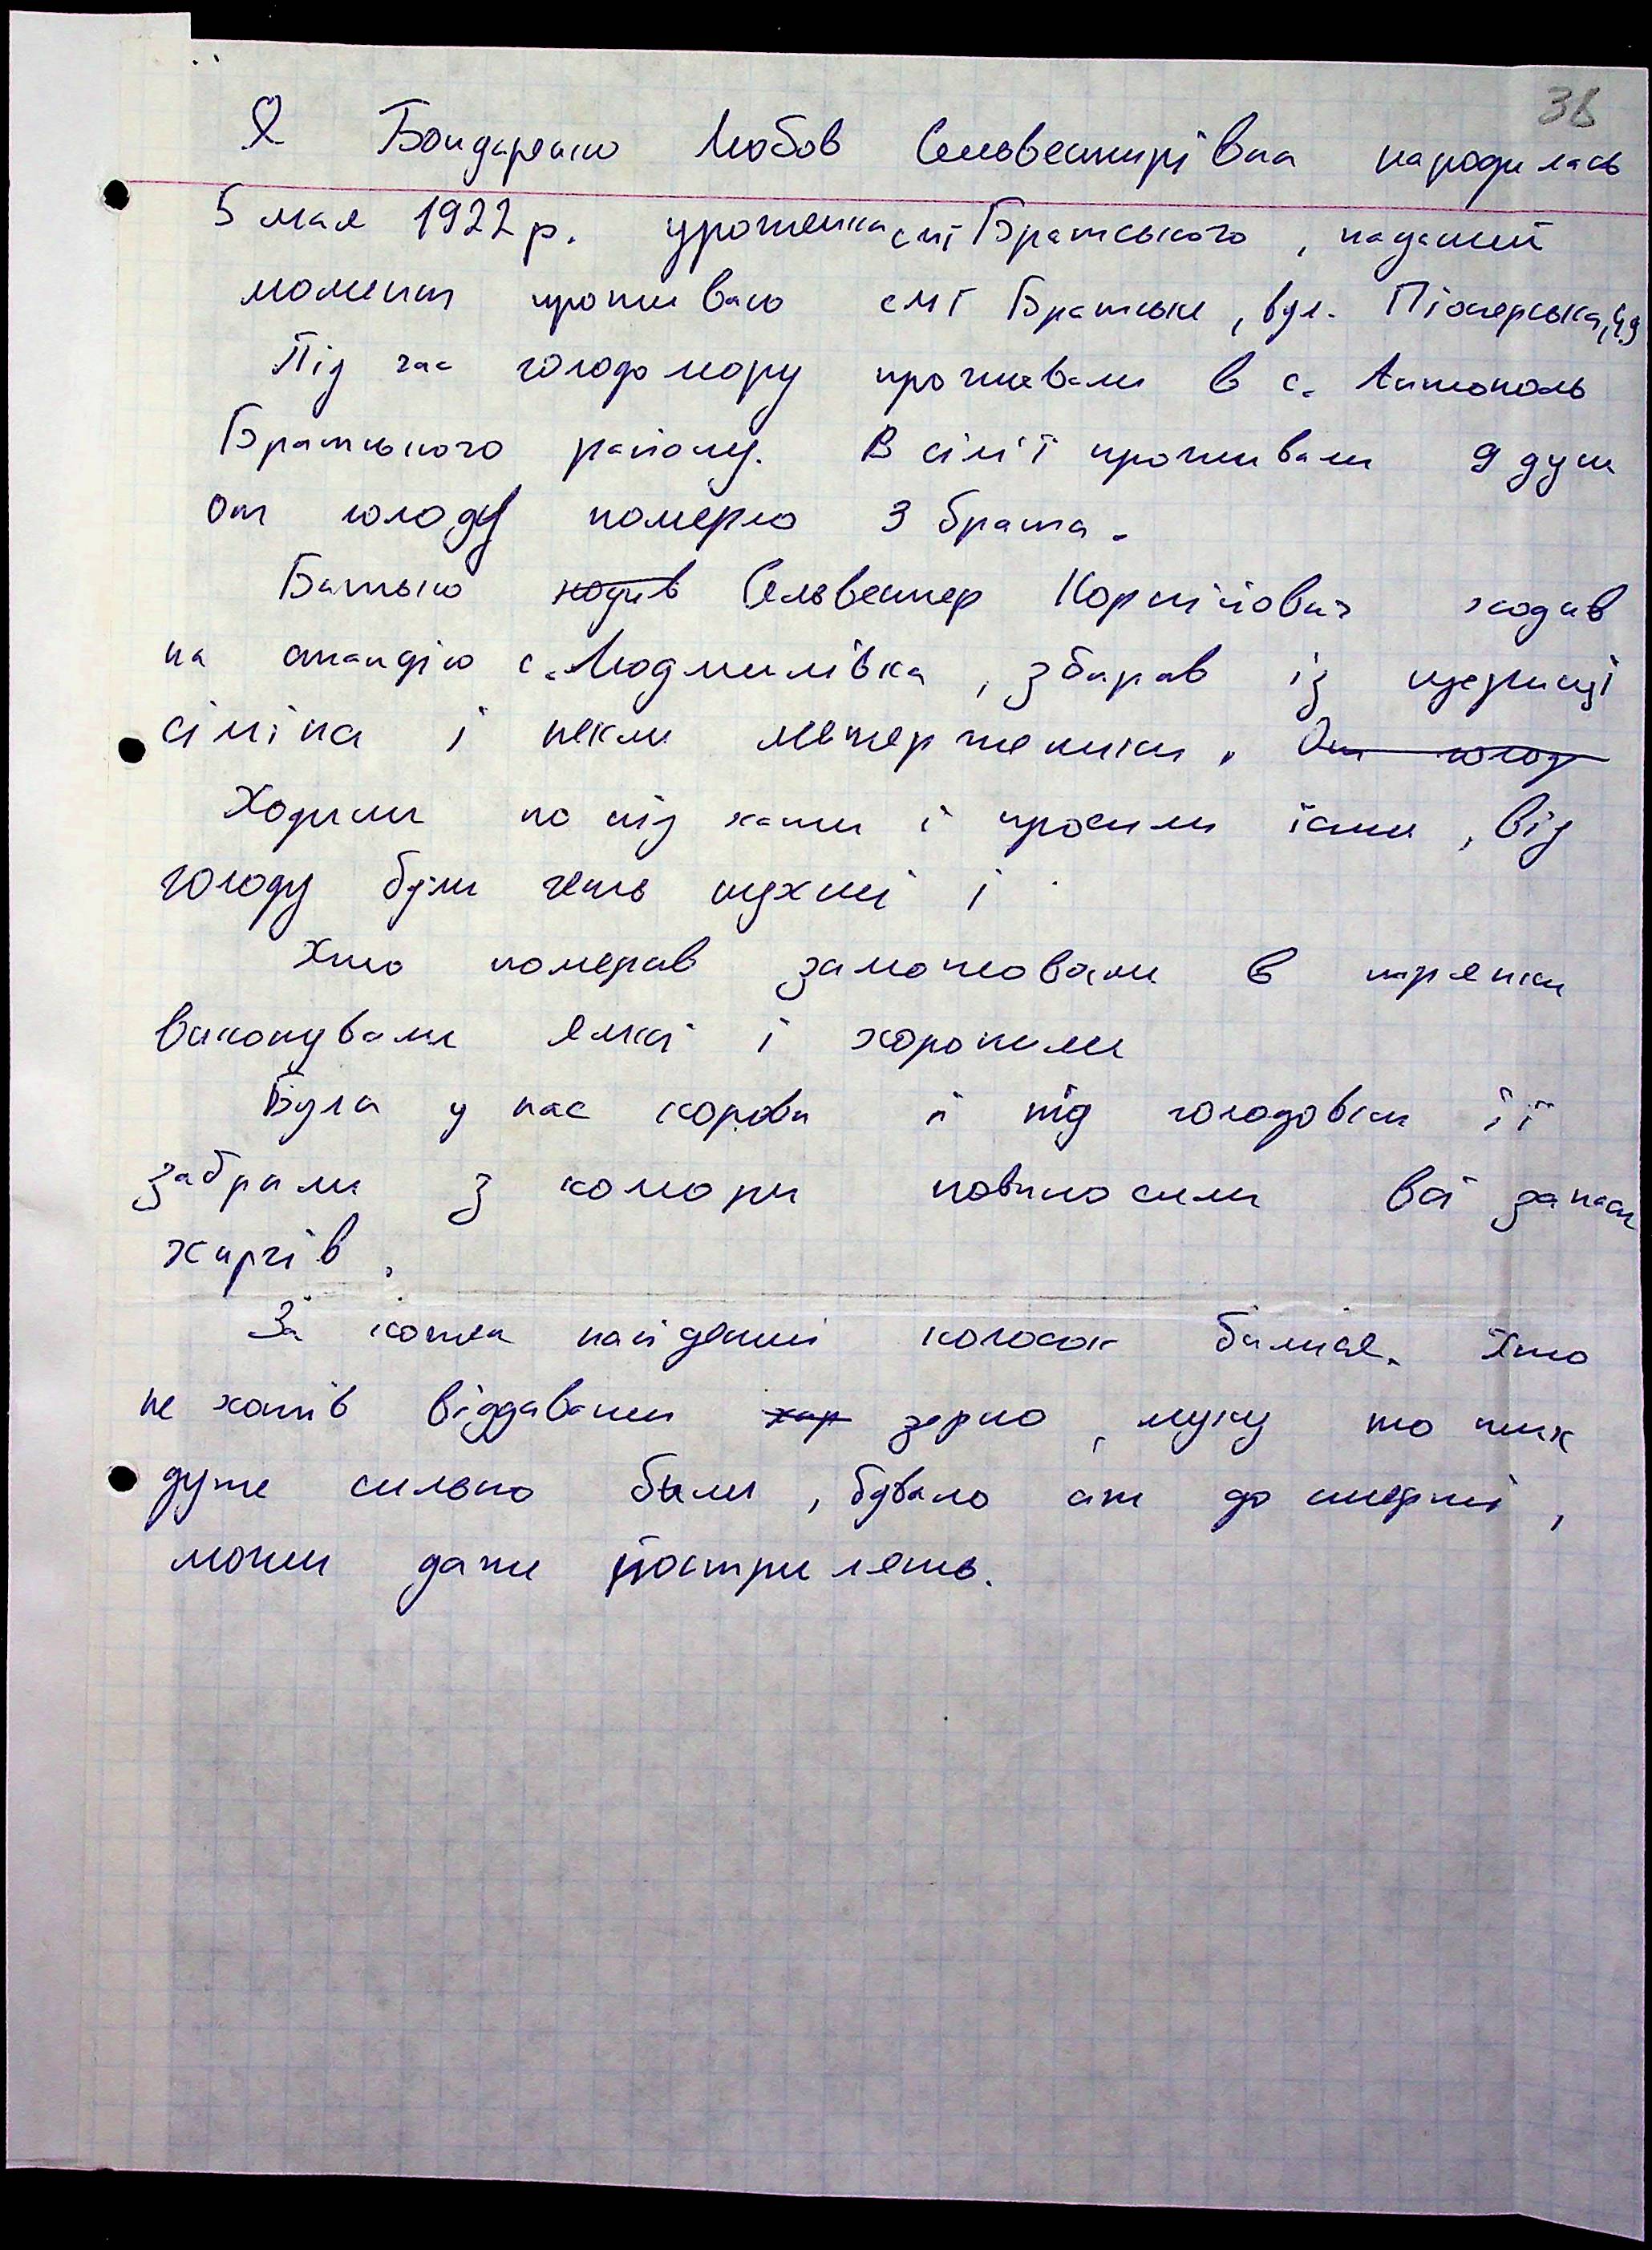 38
Я Бондаренко Любов Сельвестирівна народилась
5 мая 1922 р. уроженка смт Братського, на даний
момент проживаю смт Братське, вул. Піонерська, 49
Під час голодомору проживали в с. Антополь
Братського району. В сім'ї проживали 9 душ
От голоду померло 3 брата.
Батько ходив Сельвестер Корнійович ходив
на станцію с. Людмилівка, збирав із пшениці
сміття і пекли маторженики. От голод
Ходили по під хати і просили їсти, від
голоду були геть пухлі і
Хто помирав замотовали в тряпки
викопували ямкі і хоронили
Була у нас корова і під голодовки її
забрали з комори повиносили всі запаси
харчів.
За кожен найдений колосок билися. Хто
не хотів віддавати хар зерно, муку то тих
дуже сильно били, бувало аж до смерті,
могли даже пострилять.